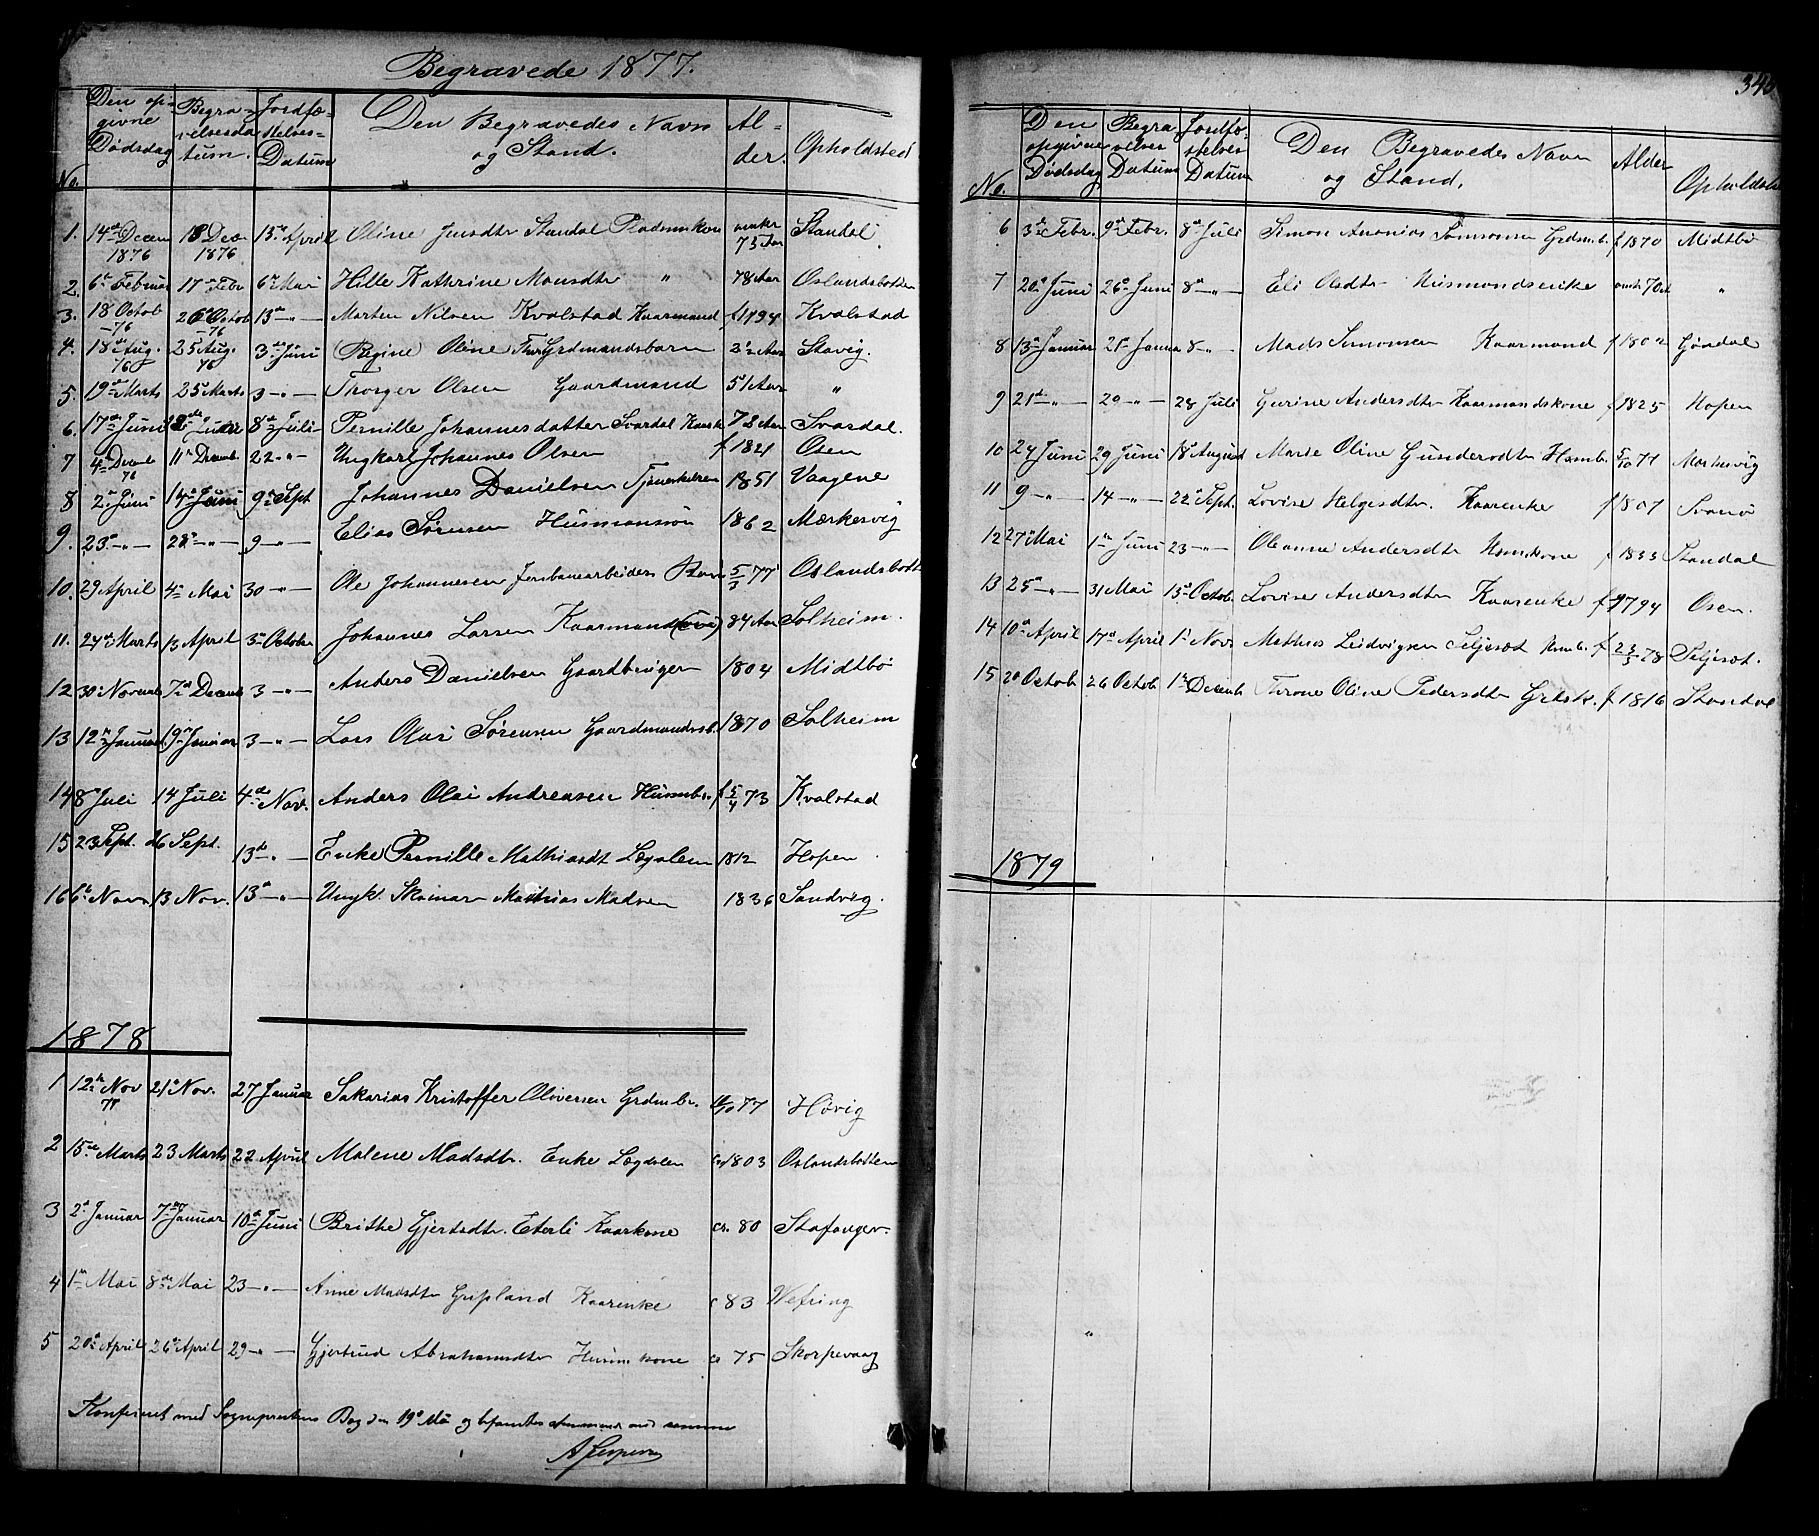 Begravede 1877.
No. Den opgivne Dødsdag Begravelsesdatum. Jordfæstelses-Datum Den Begravedes Navn og Stand. Alder. Opholdsted
1. 14de Decem 1876 18 Dec. 1876 13de April Oline Jensdtr Standal 73 Aar Standal.
2. 6te Februar 17de Febr 6te Mai Hille Kathrine Monsdtr " 78 Aar Oslandsbotten
3. 18 Octob -76 26 Octob -76 13de -"- Morten Nilsen Kvalstad Kaarmand f 1794 Kvalstad
4. 18de Aug. 76 25 Aug. 76 3de Juni Regine Oline Grdmandsbarn 2½ Aar Stavig.
5. 19de Marts 25de Marts 3 -"- Thorger Olsen Gaardmand 51 Aar "
6. 17de Juni Juni 8de Juli Pernille Johannesdatter Svardal 72 Aar Svardal.
7 4de Decemb 76 11te Decemb. 22 -"- Ungkarl Johannes Olsen f 1821 Osen
8 2den Juni 14de Juni 9de Sept Johannes Danielsen 1851 Vaagene
9. 23de -"- 28de -"- 9 -"- Elias Sørensen Husmanssøn 1862 Mærkesvig
10. 29 April 4de Mai 30 -"- Ole Johannesen Jernbanearbeiders Barn 5/3 77 Oslandsbott
11. 24de Marts 13 April 3de October Johannes Larsen Kaarmand 84 Aar Solheim.
12 30te Novemb 7de Decemb 3 -"- Anders Danielsen Gaardbruger 1804 Midtbø
13 12te Januar 19de Januar 3 -"- Lars Olai Sørensen Gaardmandsb. 1870 Solheim
14 8de Juli 14 Juli 4de Nov. Anders Olai Andreasen Husmb. f 5/4 73 Kvalstad
15 23 Sept. 26 Sept. 13de -"- Enke Pernille Mathiasdt Lægslem 1812 Hopen
16 6te Novr. 13 Nov. 13de -"- Ungk. Mathias Madsen 1836 Sandvig.
1878
1 12te Nov 77 21de Nov. 27 Januar Sakarias Kristoffer Oliversen Grdmb. 77 Høvig
2 15de Marts 23 Marts 22 April Malene Madsdtr. Enke Lægdslem ca 1803 Oslandsbotten
3 2den Januar 7de Januar 10de Juni Brithe Gjertsdtr. Eterli Kaarkone ca. 80 Stafanger.
4 1ste Mai 8de Mai 23 -"- Anne Madsdtr Gripland Kaarenke c 83 Wefring
5 20de April 26de April 29 -"- Gjertrud Abrahamsdtr Husmkone ca 75 Skorpevaag
Konfereret med Sogneprestens Bog den 19de Mai og befundet stemmende med samme
340
No. Den opgivne Dødsdag Begravelses Datum Jordfæstelses Datum Den Begravedes Navn og Stand. Alder Opholdst
6 3de Febr. 9de Febr. 8de Juli Simon Ananias Samsonsen Grdmb. f 1870 Midtbø
7 20de Juni 26de Juni 8de -"- Eli Oledtr Husmandsenke omtr. 70 "
8 13de Januar 21de Januar 8 -"- Mads Simonsen Kaarmand f 1802 Gjøsdal
9 21de -"- 29 -"- 28 Juli Gurine Andersdtr Kaarmandskone f 1825 Hopen
10 24 Juni 29 Juni 18de August Marie Oline Gundersdtr Husmb. 5/10 77 Mærkesvig
11 9 -"- 14 -"- 22de Sept. Lovise Helgesdtr. Kaarenke f 1807 Svanø
12 27de Mai 1ste Juni 23 -"- Oleanne Andersdtr Husmkone f 1833 Standal
13 25de -"- 31 Mai 13de Octob. Lovise Andersdtr Kaarenke f 1794 Osen.
14 10de April 17de April 1ste Novr Mathias Leidvigsen Seljesæt Husmb. f 23/3 78 Seljesæt.
15 20 Octob 26 Octob 1ste Decemb Throne Oline Pedersdtr Grdsk. f 1816 Standal
1879